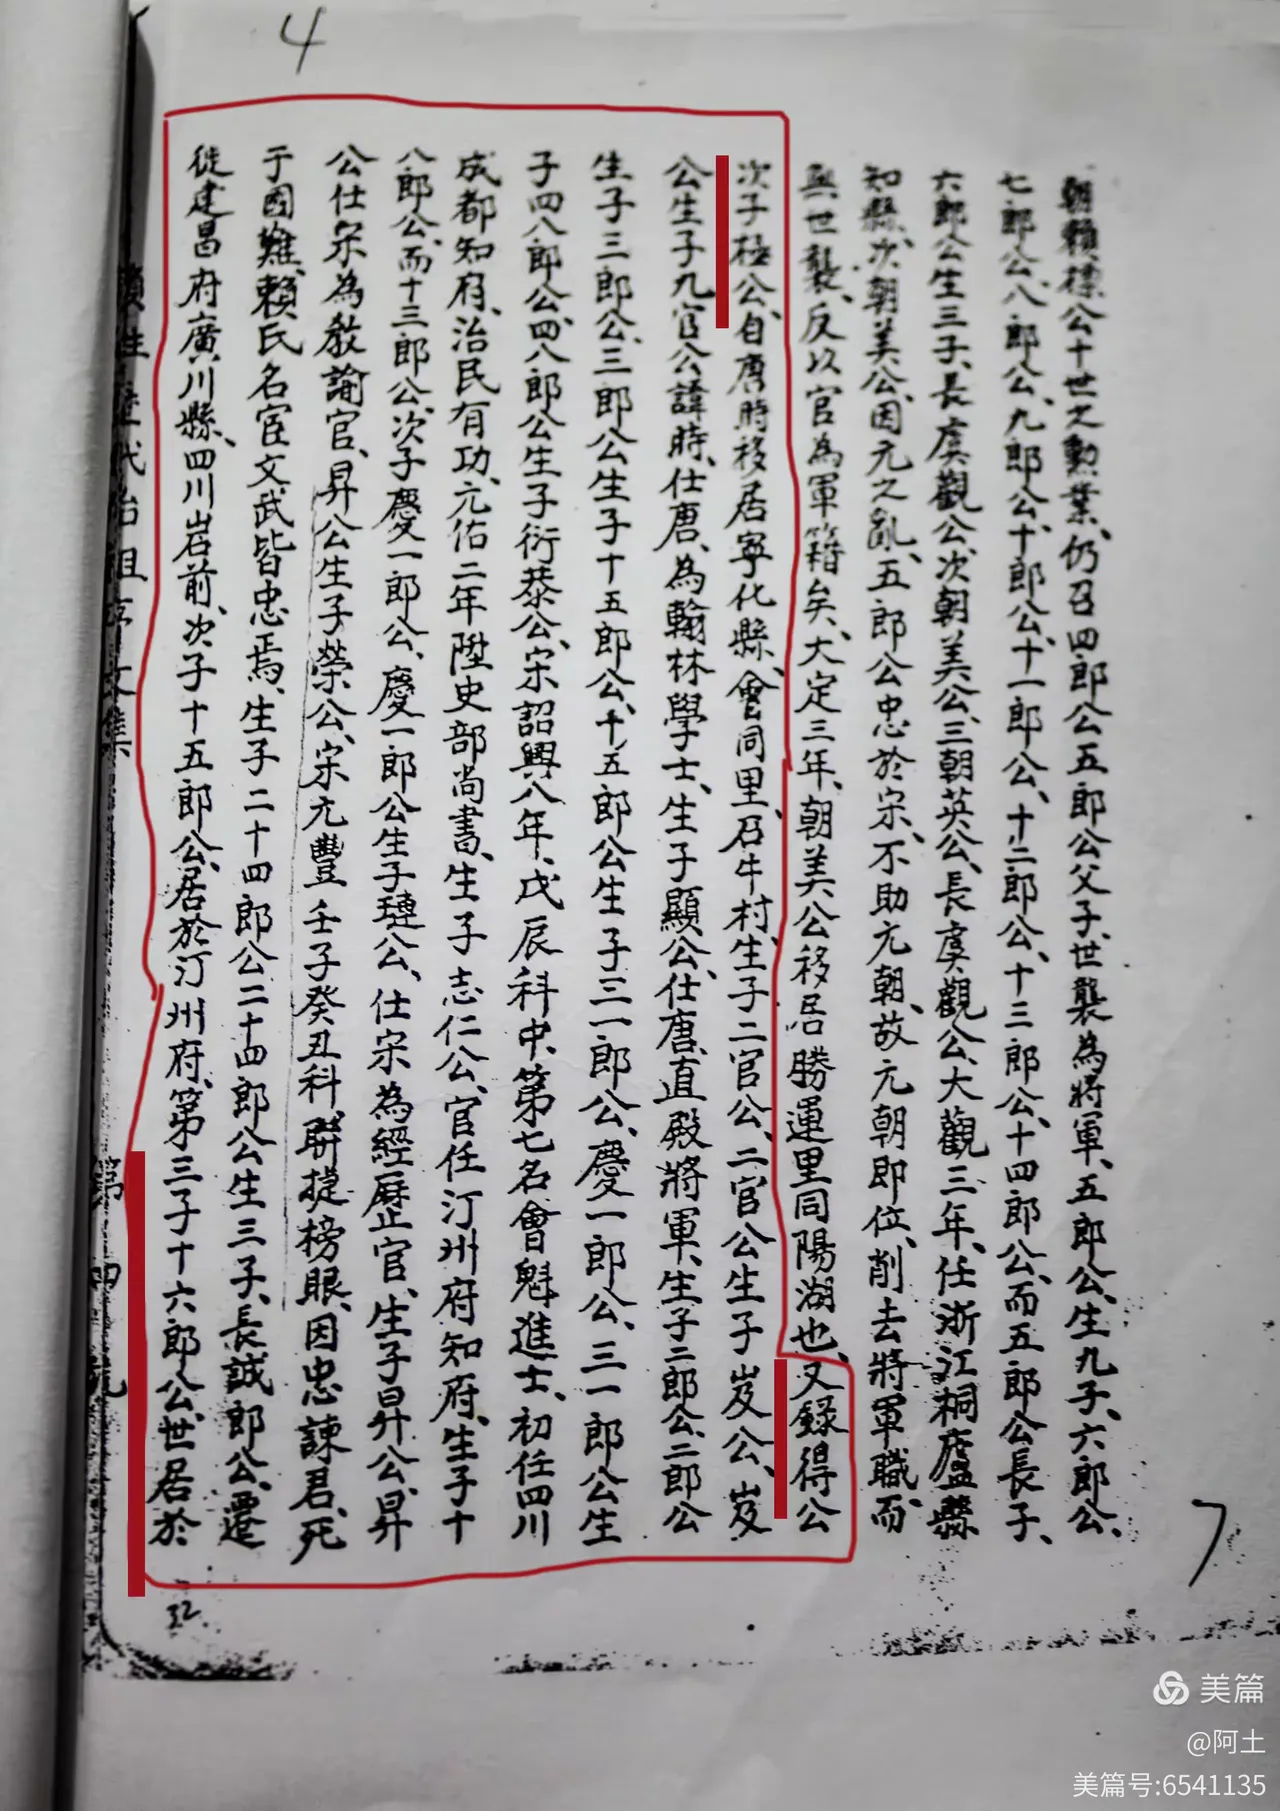 4
朝賴標公十世之勳業、仍召四郎公五郎公父子、世襲為將軍、五郎公、生九子、六郎公、
七郎公、八郎公、九郎公、十郎公、十一郎公、十二郎公、十三郎公、十四郎公、而五郎公長子、
六郎公生三子、長虞觀公、次朝美公、三朝英公、長虞觀公、大觀三年、任浙江桐廬縣
知縣、次朝美公、因元之亂、五郎公忠於宋、不助元朝、故元朝即位、削去將軍職、而
無世襲、反以官為軍籍矣、大定三年、朝美公移居勝運里同陽湖也、又錄得公
次子極公、自唐時移居寧化縣、會同里、石牛村、生子二官公、二官公生子岌公、岌
公生子九官公諱時、仕唐、為翰林學士、生子顯公、仕唐、直殿將軍、生子二郎公、二郎公
生子三郎公、三郎公生子十五郎公、十五郎公生子三一郎公、慶一郎公、三一郎公生
子四八郎公、四八郎公生子衍恭公、宋詔興八年、戊辰科中、第七名會魁進士、初任四川
成都知府、治民有功、元佑二年陞史部尚書、生子志仁公、官任汀州府知府、生子十
八郎公、而十三郎公、次子慶一郎公、慶一郎公生子璉公、仕宋為經歷止官、生子昇公、昇
公仕宋為教諭官、昇公生子榮公、宋元豐壬子癸丑科聯捷榜眼、因忠諫君、死
于國難、賴氏名宦文武皆忠焉、生子二十四郎公二十四郎公生三子、長誠郎公、遷
徙建昌府廣川縣、四川岩前、次子十五郎公、居於汀州府、第三子十六郎公、世居於
賴姓歷代始祖序文集
第四號
32
7
美篇
@阿土
美篇号:6541135